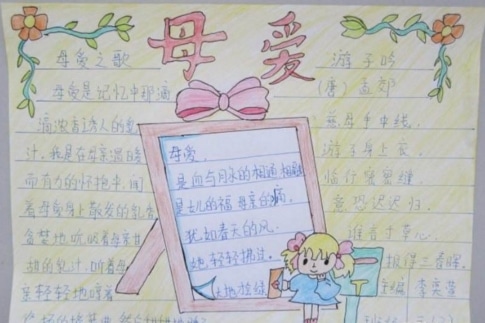 母爱
母爱之歌
母爱是记忆中那滴
滴浓香诱人的乳
汁，我是在母亲温暖
而有力的怀抱里，闻
着母亲身上散发的乳香
贪婪地吮吸着母亲甘
甜的乳汁，听着母
亲轻轻地哼着
母爱.
是血与月水的相通
是儿的福 母亲的痛，
犹如春天的风.
她轻轻拂过.
大地拾绿
游子吟
（唐）孟郊
慈母手中线.
游子身上衣.
临行密密缝
意恐迟迟归.
谁言寸草心.
报得三春晖.
主编：李奕萱